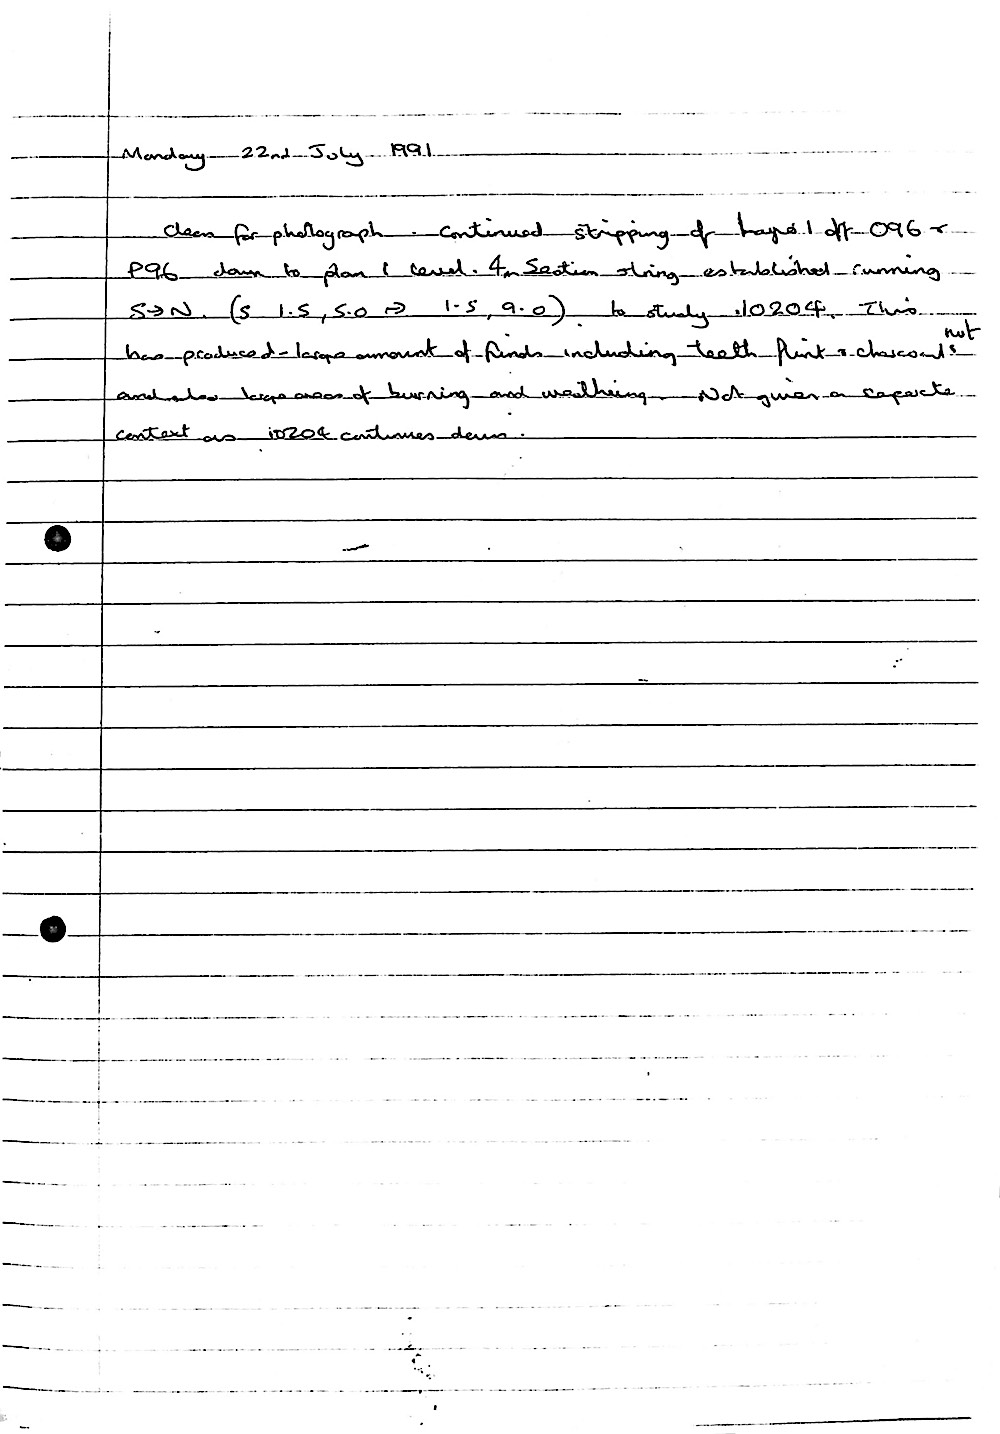 Monday 22nd July 1991
Clean for photograph. Continued stripping of Layer 1 off O96 &
P96 down to plan 1 level. 4m Section string established running
S→N. (S 1.5, 5.0 → 1.5, 9.0) to study 10204. This
has produced large amount of finds including teeth flint & charcoal
not
and also large areas of burning and Not given a seperate
context as 10204 continues down.